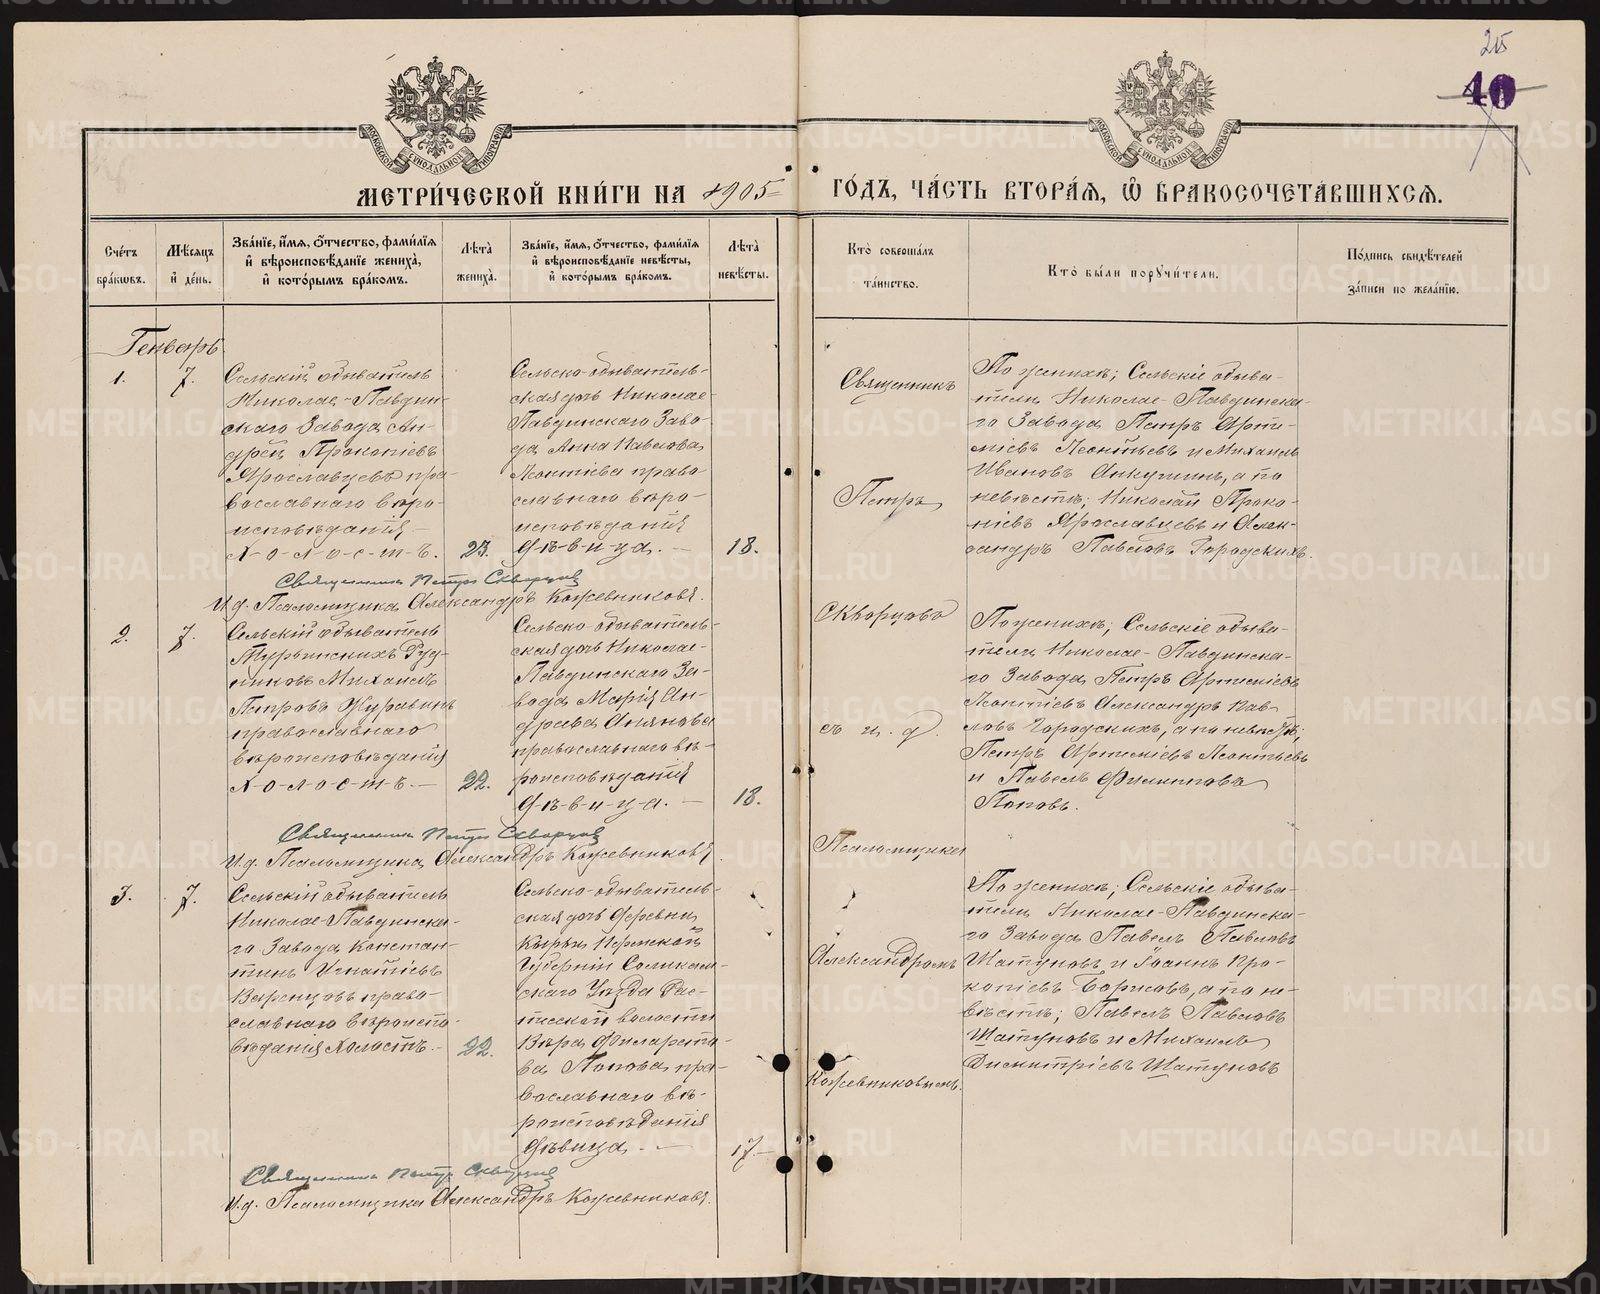 25
40
МОСКОВСКОЙ СѴНОДАЛЬНОЙ ТИПОГРАФІИ
МОСКОВСКОЙ СѴНОДАЛЬНОЙ ТИПОГРАФІИ
МЕТРИ́ЧЕСКОЙ КНИ́ГИ НА 1905
ГО́ДЪ, ЧА́СТЬ ВТОРА́Я, Ѡ҆ БРАКОСОЧЕТА́ВШИХСЯ.
Сче́тъ бра́кѡвъ.
Мѣ́сяцъ и҆ де́нь.
Зва́нїе, и҆́мя, ѻ҆́тчество, фами́лїя и҆ вѣроисповѣ́данїе жениха̀, и҆ кото́рымъ бра́комъ.
Лѣта̀ жениха̀.
Зва́нїе, и҆́мя, ѻ҆́тчество, фами́лїя и҆ вѣроисповѣ́данїе невѣ́сты, и҆ кото́рымъ бра́комъ.
Лѣта̀ невѣ́сты.
Кто̀ соверша́лъ та́инство.
Кто̀ бы́ли поручи́тели.
По́дпись свидѣ́телей за́писи по жела́нїю.
Генварь
1.
7.
Сельскій обыватель
Николае-Павдин-
скаго Завода Ан-
дрей Прокопіевъ
Ярославцевъ пра-
вославнаго вѣро-
исповѣданія
Х-о-л-о-с-т-ъ.
23.
Сельско-обыватель-
ская дочь Николае-
Павдинскаго Заво-
да Анна Павлова
Леонтіева право-
славнаго вѣро-
исповѣданія
дѣ-в-и-ца.
18.
Священникъ
Петръ
Скворцовъ
съ и. д.
Псаломщика
Александромъ
Кожевниковымъ.
По женихѣ; Сельскіе обыва-
тели Николае-Павдинска-
го Завода Петръ Арте-
міевъ Леонтьевъ и Михаилъ
Ивановъ Анкушинъ, а по
невѣстѣ; Николай Проко-
піевъ Ярославцевъ и Алек-
сандръ Павловъ Городскихъ.
Священникъ Петръ Скворцовъ
И. д. Псаломщика Александръ Кожевниковъ.
2.
7.
Сельскій обыватель
Турьинскихъ Руд-
никовъ Михаилъ
Петровъ Журавинъ
православнаго
вѣроисповѣданія
Х-о-л-о-с-т-ъ.
22.
Сельско-обыватель-
ская дочь Николае-
Павдинскаго За-
вода Марія Ан-
дреева
православнаго вѣ-
роисповѣданія
дѣ-в-и-ц-а.
18.
По женихѣ; Сельскіе обыва-
тели Николае-Павдинска-
го Завода Петръ Артеміевъ
Леонтіевъ Александръ Пав-
ловъ Городскихъ, а по невѣстѣ;
Петръ Артеміевъ Леонтьевъ
и Павелъ Филипповъ
Поповъ.
Священникъ Петръ Скворцовъ
И. д. Псаломщика Александръ Кожевниковъ
3.
7.
Сельскій обыватель
Николае-Павдинска-
го Завода Констан-
тинъ Игнатіевъ
Варенцовъ право-
славнаго вѣроиспо-
вѣданія Холостъ.
22.
Сельско-обыватель-
ская дочь деревни
Пермской
Губерніи Соликам-
скаго Уѣзда Рас-
тесской волости
Вѣра Филарето-
ва Попова пра-
вославнаго вѣ-
роисповѣданія
дѣвица.
17
По женихѣ; Сельскіе обыва-
тели Николае-Павдинска-
го Завода Павелъ Павловъ
Шатуновъ и Іоаннъ Про-
копіевъ Борисовъ, а по не-
вѣстѣ; Павелъ Павловъ
Шатуновъ и Михаилъ
Димитріевъ Шатуновъ
Священникъ Петръ Скворцовъ
И. д. Псаломщика Александръ Кожевниковъ.
METRIKI.GASO-URAL.RU